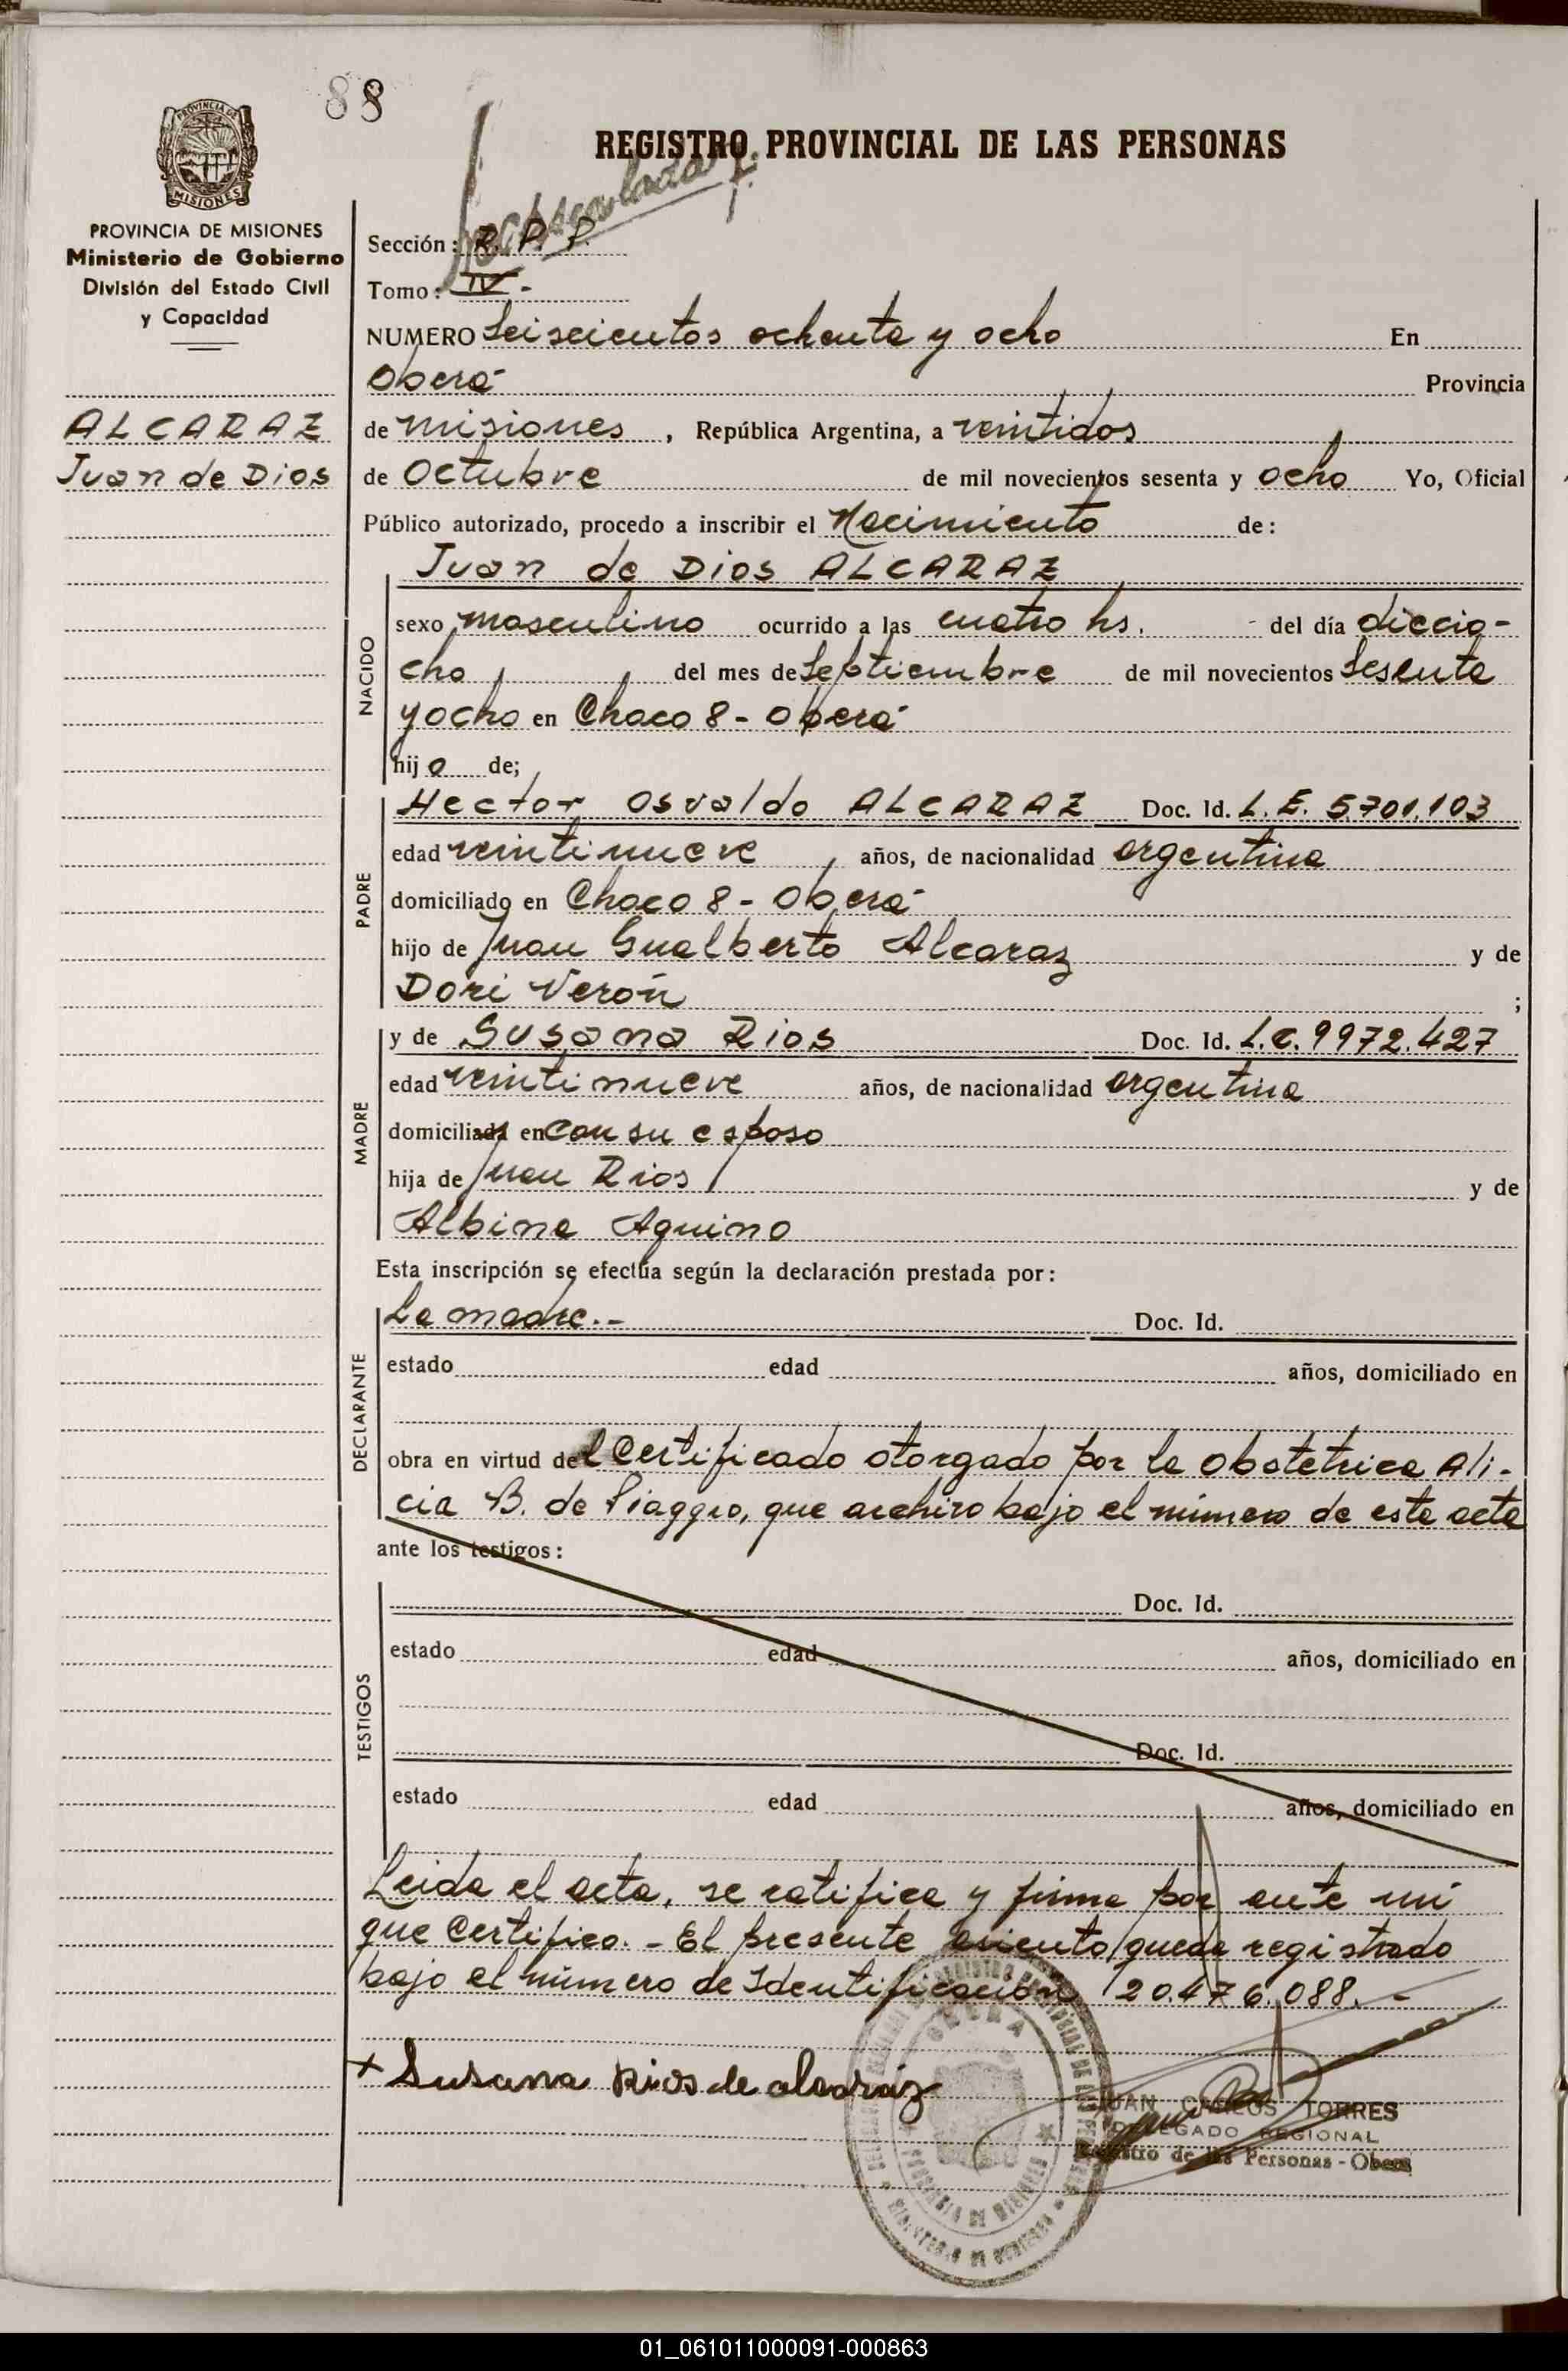 88
REGISTRO PROVINCIAL DE LAS PERSONAS
PROVINCIA DE
MISIONES
PROVINCIA DE MISIONES
Ministerio de Gobierno
División del Estado Civil
y Capacidad
ALCARAZ
Juan de Dios
Sección: R. P. P.
Tomo: IV -
NUMERO Seiscientos ochenta y ocho En
Oberá Provincia
de misiones, República Argentina, a veintidos
de Octubre de mil novecientos sesenta y ocho Yo, Oficial
Público autorizado, procedo a inscribir el Nacimiento de:
Juan de Dios ALCARAZ
NACIDO
sexo masculino ocurrido a las cuatro hs. - del día diecio-
cho del mes de Septiembre de mil novecientos Sesenta
y ocho en Chaco 8 - Oberá
hijo de;
PADRE
Hector Osvaldo ALCARAZ Doc. Id. L. E. 5.701.103
edad veintinueve, años, de nacionalidad argentina
domiciliado en Chaco 8 - Oberá
hijo de Juan Gualberto Alcaraz y de
Dori Verón ;
MADRE
y de Susana Rios Doc. Id. L.C. 9972.427
edad veintinueve años, de nacionalidad argentina
domiciliada en con su esposo
hija de Juan Rios y de
Albina Aquino
Esta inscripción se efectúa según la declaración prestada por:
DECLARANTE
La madre.- Doc. Id.
estado edad años, domiciliado en
obra en virtud del Certificado otorgado por la obstetrica Ali-
cia B. de Piaggio, que archivo bajo el número de este acta
ante los testigos:
TESTIGOS
Doc. Id.
estado edad años, domiciliado en
Doc. Id.
estado edad años, domiciliado en
Leida el acta, se ratifica y firma por ante mi
que Certifico. - El presente asiento queda registrado
bajo el número de Identificación 20.476.088. -
+ Susana Rios de alcaráz
OBERA
PROVINCIA DE MISIONES
MINISTERIO DE GOBIERNO
JUAN CARLOS TORRES
DELEGADO REGIONAL
Registro de las Personas - Obera
01_061011000091-000863